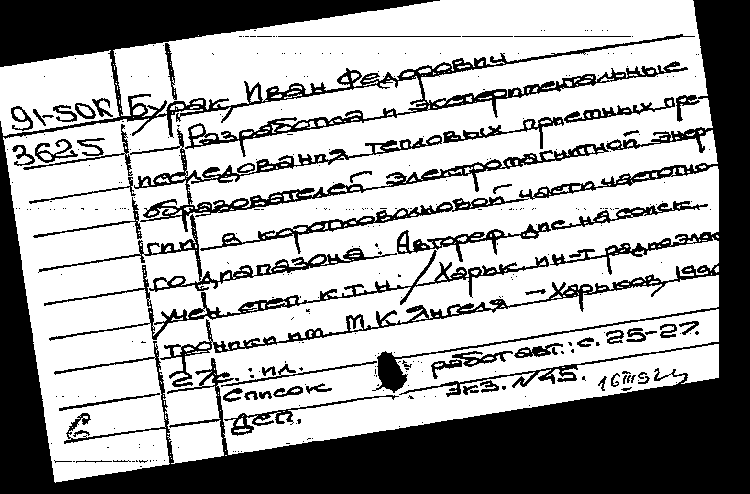 91-50К Бурак, Иван Федорович
3625 Разработка и экспериментальные
исследования тепловых приемных пре-
образователей электромагнитной энер-
гии в коротковолновой части частотно-
го диапазона: Автореф. дис. на соиск.
учен. степ. к.т.н. / Харьк. ин-т радиоэлек
троники им. М.К. Янгеля – Харьков, 1990
27с.: ил.
Список работ авт.: с. 25-27.
Деп. Экз. N45. 16III92г